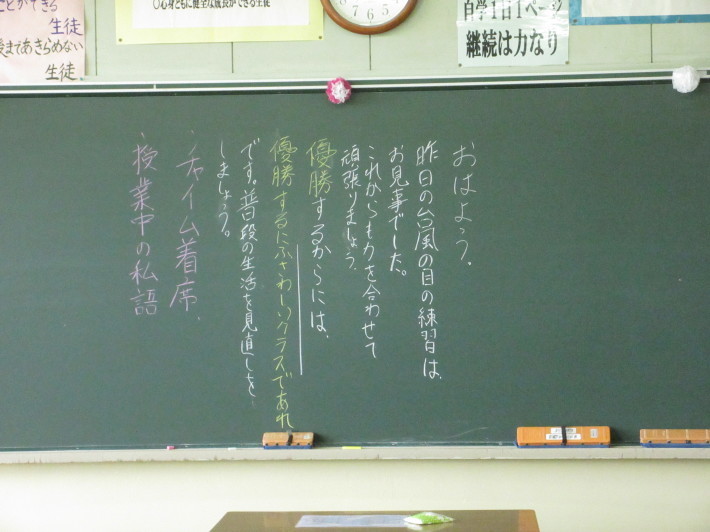 とができる
生徒
後まであきらめない
生徒
○心身ともに健全な成長ができる生徒
7
6
5
自学1日1ページ
継続は力なり
おはよう。
昨日の台風の目の練習は、
お見事でした。
これからも力を合わせて
頑張りましょう。
優勝するからには、
優勝するにふさわしいクラスであれ
です。普段の生活を見直しを
しましょう。
・チャイム着席、
・授業中の私語